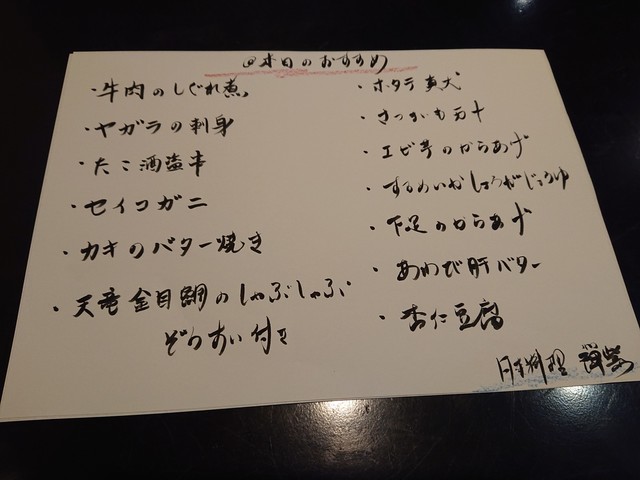 本日のおすすめ
・牛肉のしぐれ煮
・ヤガラの刺身
・たこ酒盗串
・セイコガニ
・カキのバター焼き
・天竜金目鯛のしゃぶしゃぶ
ぞうすい付き
・ホタテ真丈
・さつまも万十
・エビ芋のからあげ
・するめいかしょうがじょうゆ
・下足のからあげ
・あわび肝バター
・杏仁豆腐
日本料理